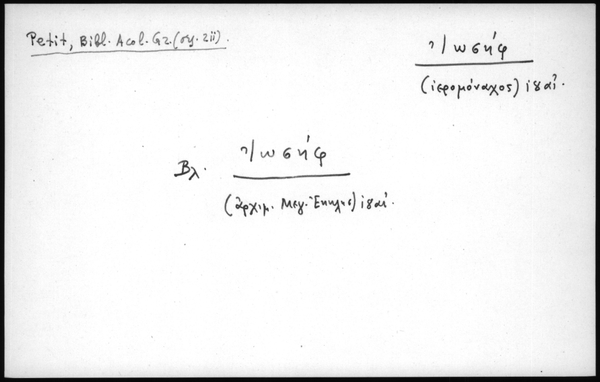 Petit, Bibl. Acol. Gr. (σ. XII).
Ἰωσήφ
(ἱερομόναχος) ιθ' αἰ.
Βλ. Ἰωσήφ
(ἀρχιμ. Μεγ. Ἐκκλησ) ιθ' αἰ.